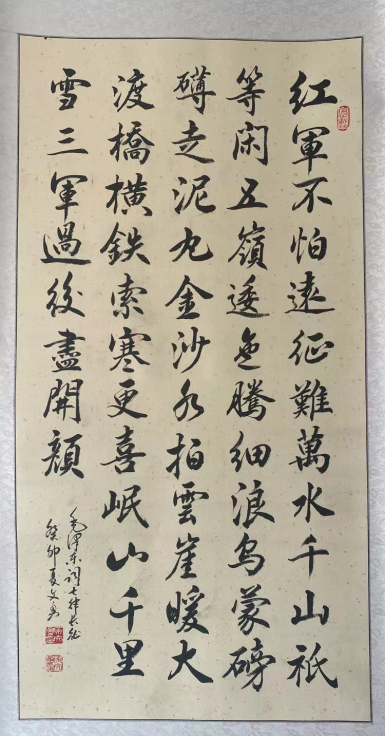 紅軍不怕遠征難萬水千山祇
等閑五嶺逶迤騰細浪烏蒙磅
礴走泥丸金沙水拍雲崖暖大
渡橋橫鉄索寒更喜岷山千里
雪三軍過後盡開顏
毛澤东詞七律长征
癸卯夏文